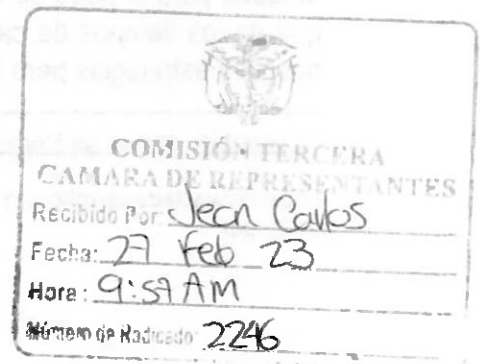 COMISIÓN TERCERA
CAMARA DE REPRESENTANTES
Recibido Por: Jean Carlos
Fecha: 27 Feb 23
Hora: 9:57 AM
Número de Radicado: 2246